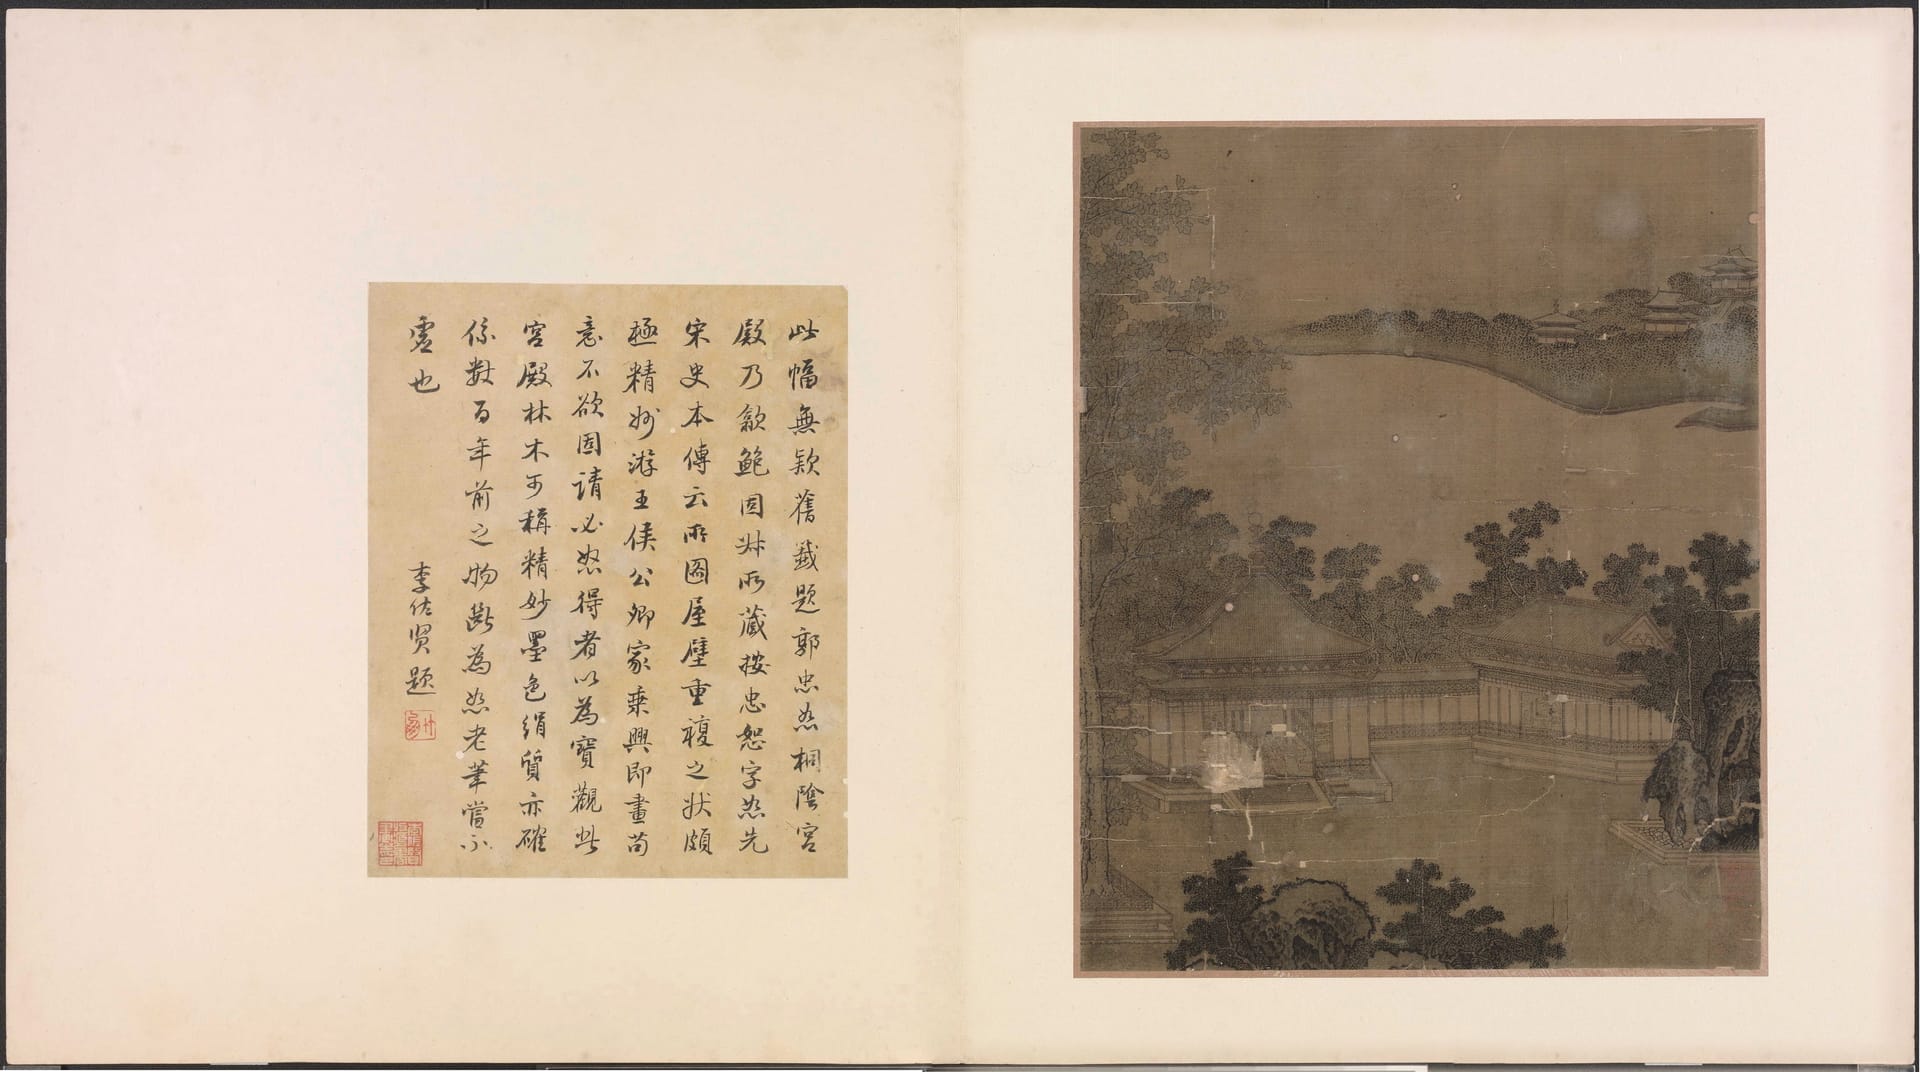 此幅無款舊籤題郭忠恕桐陰宮
殿乃歙鮑固叔所藏按忠恕字恕先
宋史本傳云所圖屋壁重複之狀頗
極精妙游王侯公卿家乘興即畫苟
意不欲固請必怒得者以為寶觀此
宮殿林木可稱精妙墨色絹質亦確
係數百年前之物斷為恕老筆當不
虛也
李佐贤題